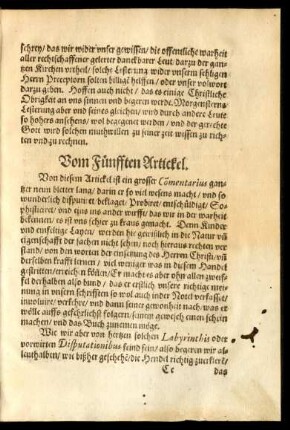 schrey/ das wir wider unser gewissen/ die offentliche warheit
aller rechtschaffener gelerter danckbarer Leut/ darzu der gan-
tzen Kirchen vrtheil/ solche Lesterung wider vnsern seligen
Herrn Preceptorn solten billigē helffen/ oder vnser volwort
darzu geben. Hoffen auch nicht/ das es einige Christliche
Obrigkeit an vns sinnen vnd begeren werde. Morgensterns
Lesterung aber vnd seines gleichen/ wird durch andere Leute
so hohers ansehens/ wol begegnet werden/ vnd der gerechte
Gott wird solchen muthwillen zu seiner zeit wissen zu rich-
ten vnd zu rechnen.
Vom Fünfften Artickel.
Von diesem Artickel ist ein grosser Cōmentarius gan-
tzer neun bletter lang/ darin er so viel wesens macht/ vnd so
wunderlich disputirt/ beklaget/ Probiret/ entschüldigt/ So-
phisticiret/ vnd eins ins ander wirfft/ das wir in der warheit
bekennen/ es ist vns schier zu kraus gemacht. Denn Kinder
vnd einfeltige Layen/ werden hie gewißlich in die Natur vñ
eigenschafft der sachen nicht sehen/ noch hieraus rechten ver-
stand/ von den worten der einsetzung des Herrn Christi/ vñ
derselben krafft lernen/ viel weniger was in diesem Handel
gestritten/ erreichen können/ Er macht es aber ohn allen zweif-
fel derhalben also bund/ das er erstlich vnsere richtige mei-
nung in vnsern schrifften so wol auch in der Notel verfasset/
inuoluire/ verkehre/ vnd dann seiner gewonheit nach/ was er
wölle auffs gefehrlichst folgern/ seinem gewesch einen schein
machen/ vnd das Buch zunemen möge.
Wie wir aber von hertzen solchen Labyrinthis oder
verwirten Disputationibus feind sein/ also begeren wir al-
lenthalben/ wie bißher geschehē/ die Hendel richtig zu erklerē/
Cc das